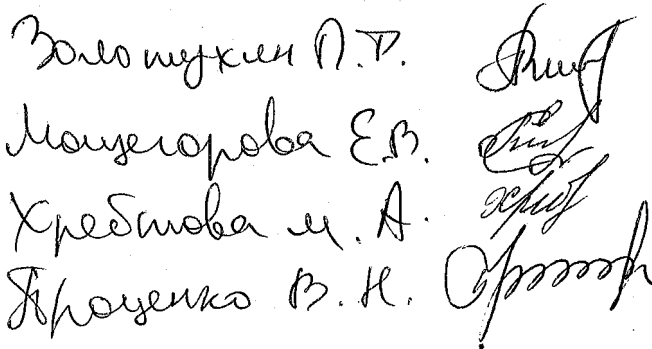 Золотухин П.Т.
Мощегорова Е.В.
Хребтова М. А.
Проценко В. Н.